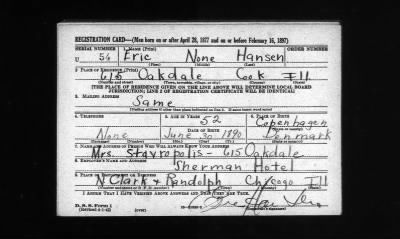 REGISTRATION CARD—(Men born on or after April 28, 1877 and on or before February 16, 1897)
SERIAL NUMBER 1. NAME (Print) ORDER NUMBER
U 56 Eric None Hansen
(First) (Middle) (Last)
2. PLACE OF RESIDENCE (Print)
615 Oakdale Cook Ill.
(Number and street) (Town, township, village, or city) (County) (State)
[THE PLACE OF RESIDENCE GIVEN ON THE LINE ABOVE WILL DETERMINE LOCAL BOARD
JURISDICTION; LINE 2 OF REGISTRATION CERTIFICATE WILL BE IDENTICAL]
3. MAILING ADDRESS
Same
[Mailing address if other than place indicated on line 2. If same insert word same]
4. TELEPHONE 5. AGE IN YEARS 6. PLACE OF BIRTH
52 Copenhagen
DATE OF BIRTH (Town or county)
None June 30 1890 Denmark
7. NAME AND ADDRESS OF PERSON WHO WILL ALWAYS KNOW YOUR ADDRESS
Mrs. Stavropolis - 615 Oakdale
8. EMPLOYER'S NAME AND ADDRESS
Sherman Hotel
9. PLACE OF EMPLOYMENT OR BUSINESS
N. Clark & Randolph Chicago Ill
I AFFIRM THAT I HAVE VERIFIED ABOVE ANSWERS AND THAT THEY ARE TRUE.
D. S. S. Form 1